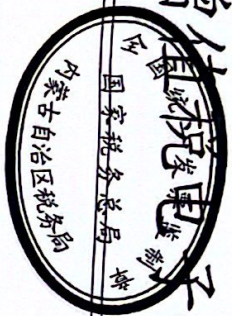 值税电子
全国统一发票监制章
国家税务总局
内蒙古自治区税务局